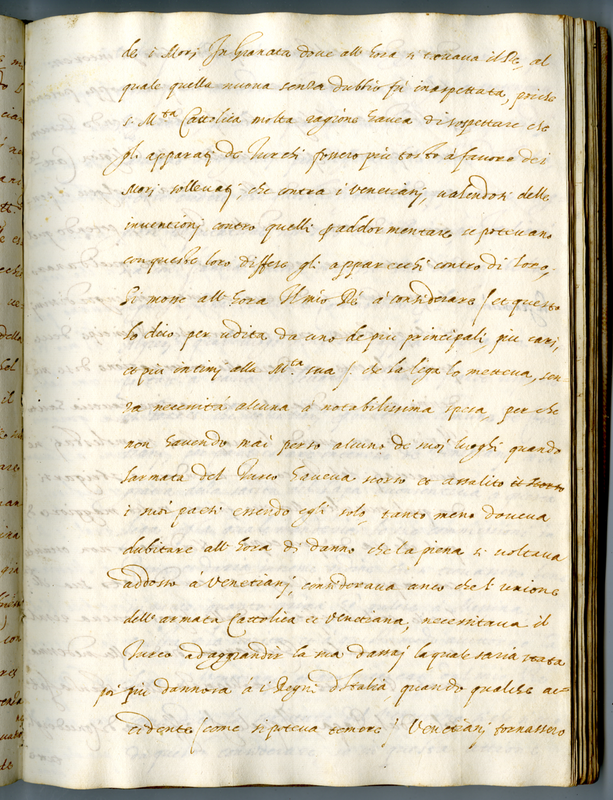 de i Mori In Granata dove all hora si trovava il Re, al
quale quella nuova senza dubbio fù inaspettata, poiche
S. Mtà Cattolica molta ragione havea di sospettare che
gli apparati de Turchi fossero più tosto à favore dei
Mori sollevati, che contra i Venetiani, valendosi delle
inventioni contro quelli addormentare se potevano
con queste loro diffese gli apparecchi contro di loro.
Si mosse all hora Il mio Rè à considerare / et questo
lo dico per udita da uno de più principali, più cari,
et più intimi alla Mta sua / che la liga lo metteva, sen-
za necessità alcuna à notabilissima spesa, per che
non havendo mai perso alcuno de suoi luoghi quando
l'armata del Turco haveva scorso et assalito
i suoi paesi essendo egli solo, tanto meno doveva
dubitare all hora di danno che la piena si voltava
addosso à Venetiani, considerava anco che l'unione
dell'armata Cattolica et Venetiana, necessitava il
Turco ad aggrandir la sua d'assai la quale saria stata
poi più dannosa à i Regni d'Italia, quando qualche ac-
cidente / come si poteva temere / i Venetiani tornassero